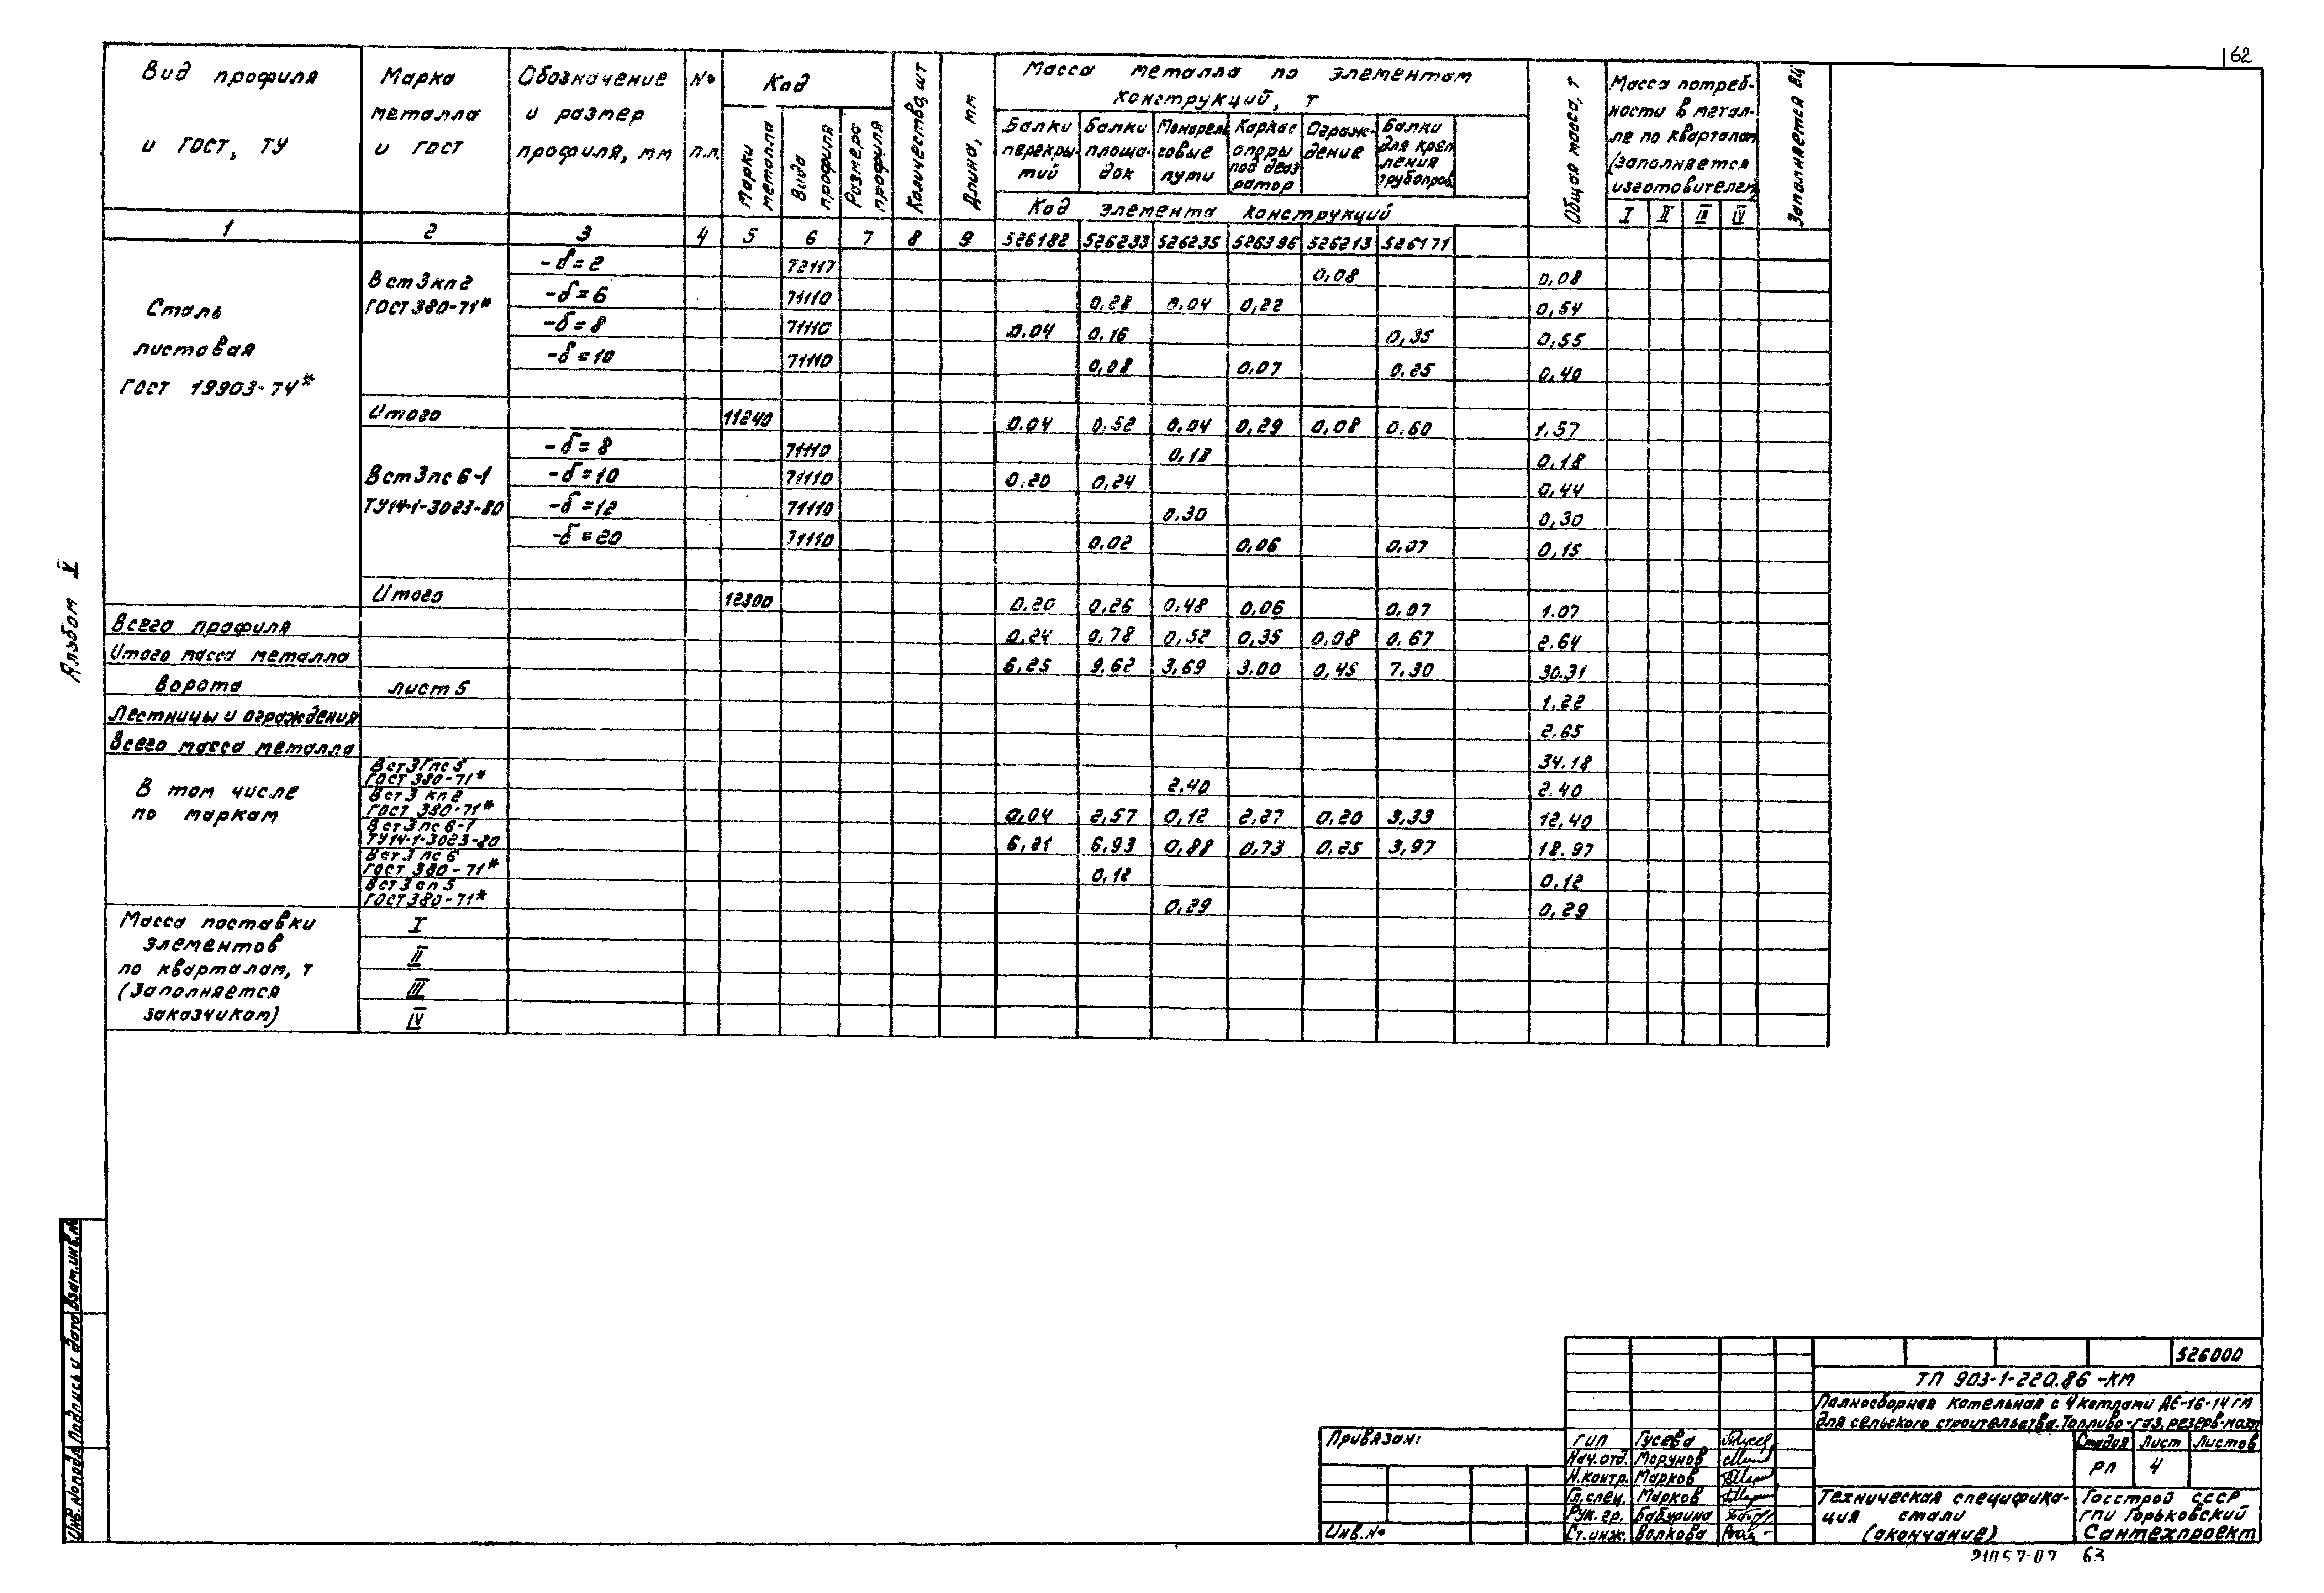 62
Вид профиля и ГОСТ, ТУ
Марка металла и ГОСТ
Обозначение и размер профиля, мм
№ п.п.
Код
Марки металла
Вида профиля
Размера профиля
Количество, шт
Длина, мм
Масса металла по элементам конструкций, т
Балки перекрытий
Балки площадок
Монорельсовые пути
Каркас опоры под деаэратор
Ограждение
Балки для крепления трубопров
Код элемента конструкций
Общая масса, т
Масса потребности в металле по кварталам (заполняется изготовителем)
I II III IV
Заполняется ВЦ
1 2 3 4 5 6 7 8 9 526182 526233 526235 526396 526213 526171
Сталь листовая ГОСТ 19903-74*
Вст3кп2 ГОСТ 380-71*
-δ=2 72117 0,08 0,08
-δ=6 71110 0,28 0,04 0,22 0,54
-δ=8 71110 0,04 0,16 0,35 0,55
-δ=10 71110 0,08 0,07 0,25 0,40
Итого 11240 0,04 0,52 0,04 0,29 0,08 0,60 1.57
Вст3пс6-1 ТУ14-1-3023-80
-δ=8 71110 0,18 0,18
-δ=10 71110 0,20 0,24 0,44
-δ=12 71110 0.30 0,30
-δ=20 71110 0,02 0,06 0,07 0,15
Итого 12300 0,20 0,26 0,48 0,06 0,07 1.07
Всего профиля 0,24 0,78 0,52 0,35 0,08 0,67 2.64
Итого масса металла 6,25 9.62 3,69 3,00 0,45 7,30 30.31
Ворота лист 5 1.22
Лестницы и ограждения 2,65
Всего масса металла 34.18
В том числе по маркам
Вст3Гпс5 ГОСТ 380-71* 2.40 2.40
Вст3 кп2 ГОСТ 380-71* 0,04 2,57 0,12 2,27 0,20 3,33 12,40
Вст3пс6-1 ТУ14-1-3023-80 6,21 6,93 0,88 0,73 0,25 3,97 18.97
Вст3 пс6 ГОСТ 380-71* 0,12 0,12
Вст3сп5 ГОСТ 380-71* 0,29 0,29
Масса поставки элементов по кварталам, т (заполняется заказчиком)
I
II
III
IV
Альбом V
Инв.№подл. Подпись и дата Взам.инв.№
526000
ТП 903-1-220.86-КМ
Полносборная котельная с 4 котлами ДЕ-16-14ГМ
для сельского строительства. Топливо-газ, резерв-мазут
Привязан:
Инв.№
ГИП Гусева
Нач.отд. Морунов
Н.контр. Марков
Гл.спец. Марков
Рук. гр. Бабурина
Ст.инж. Волкова
Стадия Лист Листов
РП 4
Техническая спецификация стали (окончание)
Госстрой СССР
ГПИ Горьковский
Сантехпроект
21057-07 63